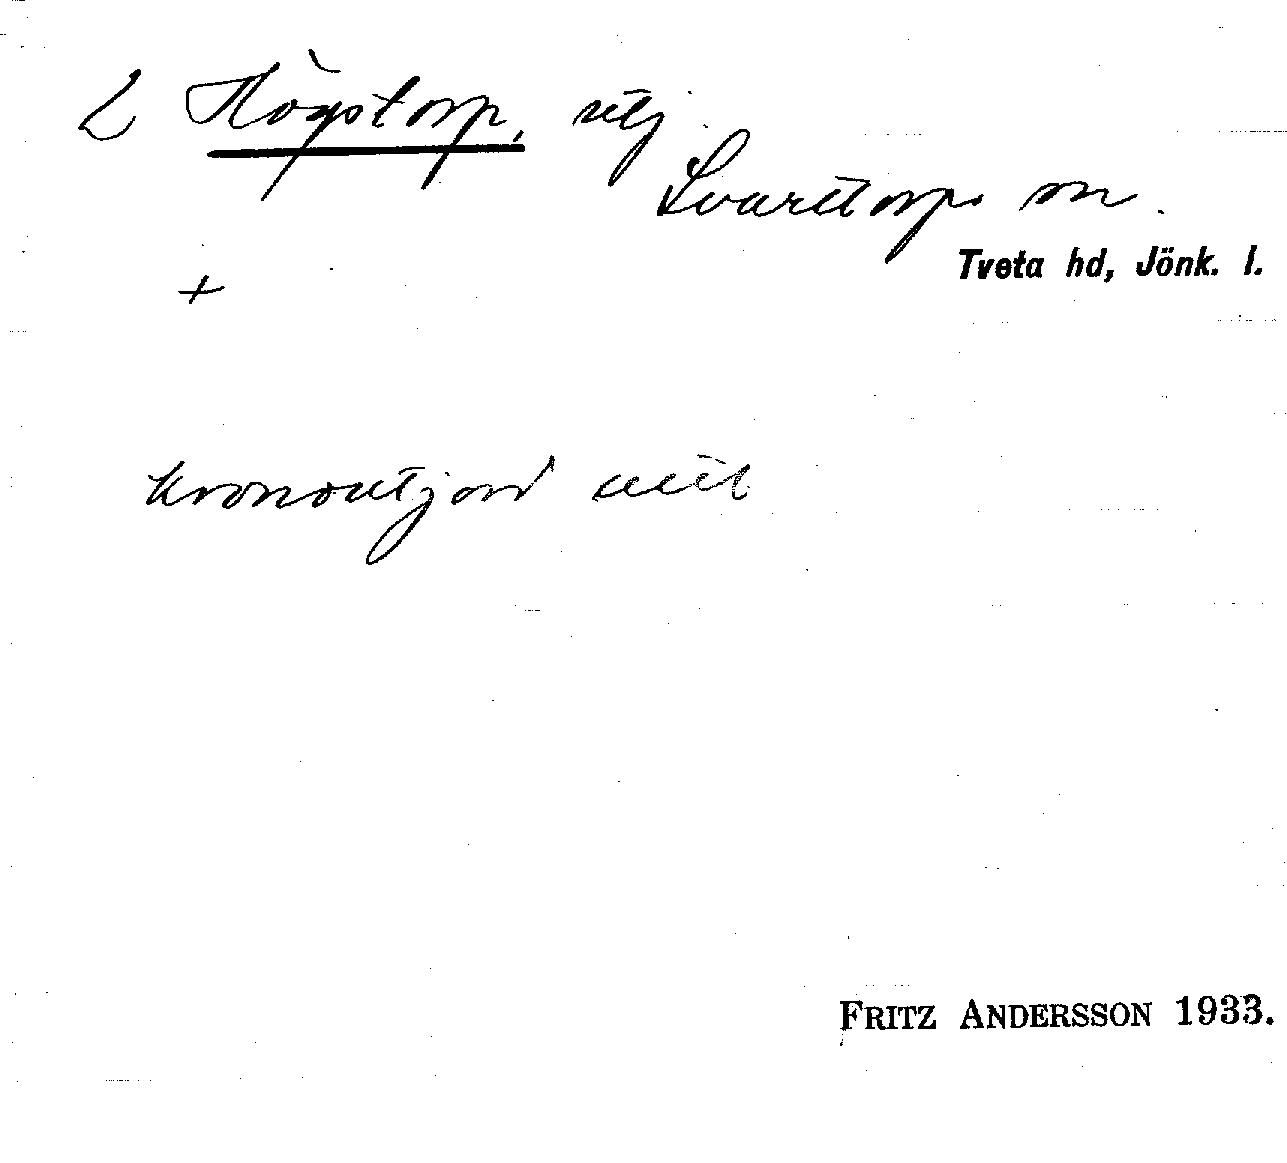 L Högstorp, utj.
Svarttorps sn.
Tveta hd, Jönk. l.
+
kronoutjord
FRITZ ANDERSSON 1933.